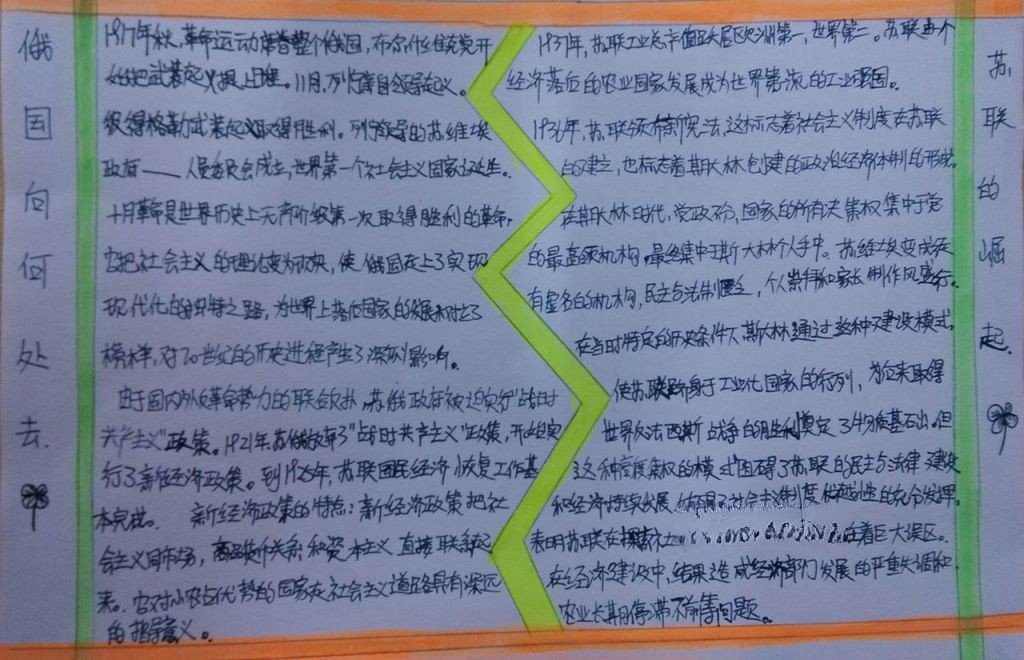 俄国向何处去
1917年秋,革命运动席卷整个俄国,布尔什维克党开
始把武装起义提上日程。11月,列宁亲自领导起义。
彼得格勒武装起义取得胜利。列宁领导的苏维埃
政府——人民委员会成立,世界第一个社会主义国家诞生。
十月革命是世界历史上无产阶级第一次取得胜利的革命,
它把社会主义的理论变为现实,使俄国走上了实现
现代化的独特之路,为世界上落后国家的发展树立了
榜样,对20世纪的历史进程产生了深刻影响。
由于国内外反革命势力的联合反扑,苏俄政府被迫实行“战时
共产主义”政策。1921年,苏俄放弃了“战时共产主义”政策,开始实
行了新经济政策。到1925年,苏联国民经济恢复工作基
本完成。 新经济政策的特点:新经济政策把社
会主义同市场,商品货币关系和资本主义直接联系起
来。它对小农占优势的国家走社会主义道路具有深远
的指导意义。
1937年,苏联工业总产值跃居欧洲第一,世界第二。苏联由个
经济落后的农业国家发展成为世界第一流的工业强国。
1936年,苏联颁布新宪法,这标志着社会主义制度在苏联
的建立,也标志着斯大林创建的政治经济体制的形成。
在斯大林时代,党政不分,国家的所有决策权集中于党
的最高领机构,最终集中于斯大林个人手中。苏维埃变成徒
有虚名的机构,民主与法制,个人崇拜和家长制作风盛行。
在当时特定的历史条件下,斯大林通过这种建设模式,
使苏联跻身于工业化国家的行列,为后来取得
世界反法西斯战争的胜利奠定了物质基础。但
这种高度集权的模式阻碍了苏联的民主与法律建设
和经济持续发展,社会主义制度优越性的充分发挥,
表明苏联在探索社在着巨大误区。
在经济建设中,结果造成经济部门发展的严重失调和
农业长期停滞不前等问题。
苏联的崛起